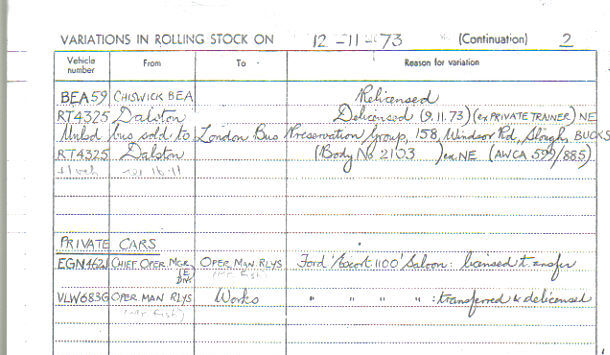 VARIATIONS IN ROLLING STOCK ON 12-11-73 (Continuation) 2
Vehicle number From To Reason for variation
BEA59 CHISWICK BEA Relicensed
RT4325 Dalston Delicensed (9.11.73) (ex PRIVATE TRAINER) NE
Unlsd bus sold to London Bus Preservation Group, 158, Windsor Rd, Slough, BUCKS
RT4325 Dalston (Body No 2103) ex NE (AWCA 599/885)
PRIVATE CARS
EGN462J CHIEF OPER. MGR. OPER MAN RLYS Ford 'Escort 1100' Saloon: licensed transfer
(E) DIV.
VLW683G OPER MAN RLYS Works " " " " : transferred & delicensed